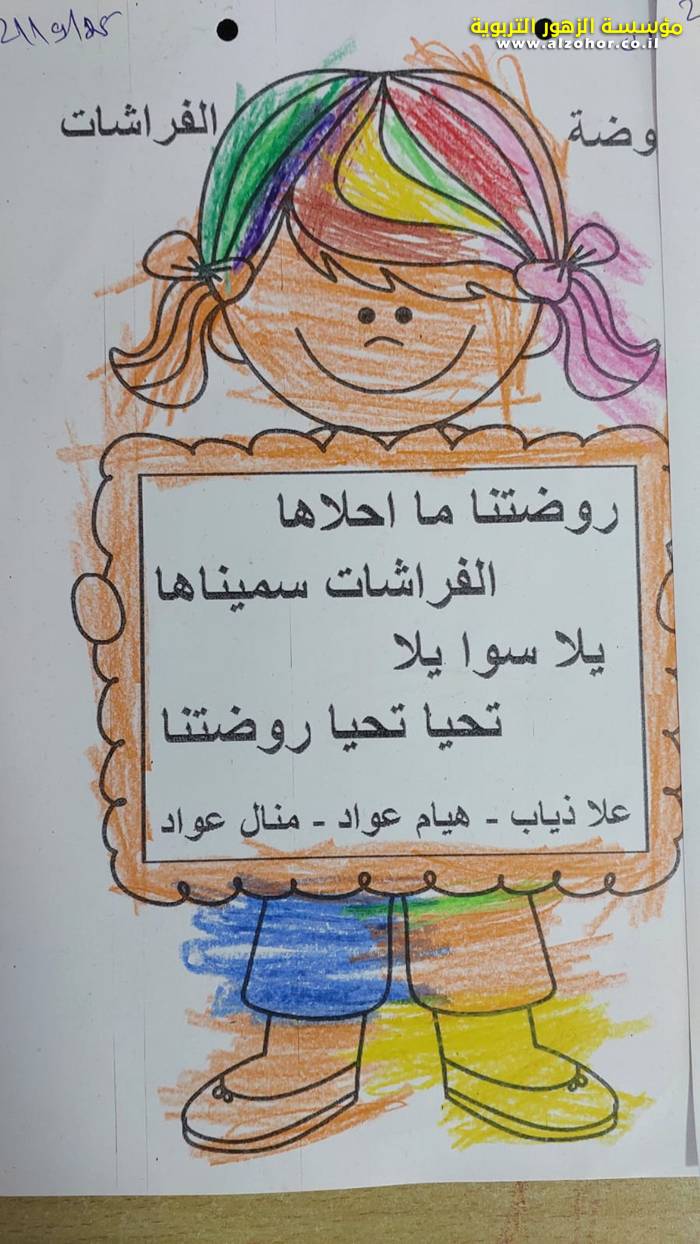 مؤسسة الزهور التربوية
www.alzohor.co.il
21/9/25
وضة الفراشات
روضتنا ما احلاها
الفراشات سميناها
يلا سوا يلا
تحيا تحيا روضتنا
علا ذياب - هيام عواد - منال عواد